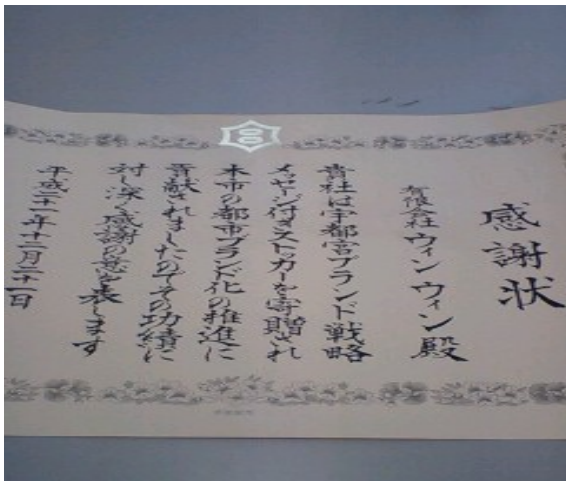 感謝状
有限会社 ウィンウィン殿
貴社は宇都宮ブランド戦略
メッセージ付きストッカーを寄贈され
本市の都市ブランド化の推進に
貢献されましたのでその功績に
対し深く感謝の意を表します
平成二十一年十二月二十一日